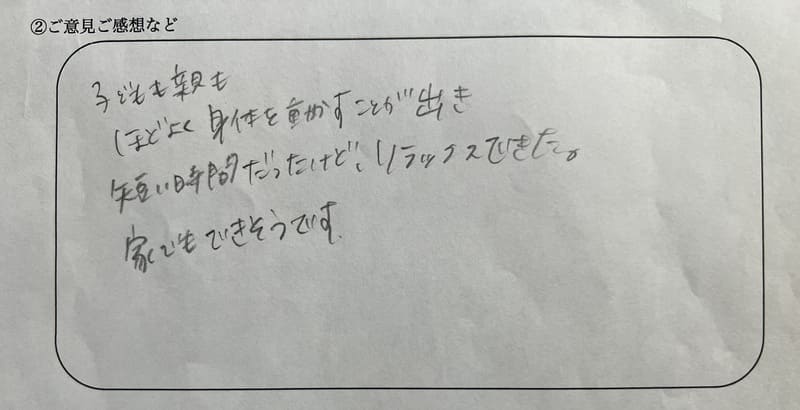 ②ご意見ご感想など
子どもも親も
ほどよく身体を動かすことが出き
短い時間だったけど、リラックスできた。
家でもできそうです.